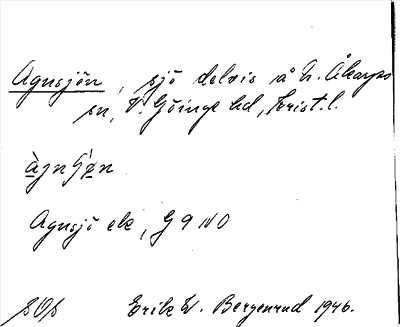 Agnsjön, sjö delvis å N. Åkarps
sn, V. Göinge hd, Krist. l.
Agnsjö ek, G9 NO
Erik W. Bergenrud 1946.